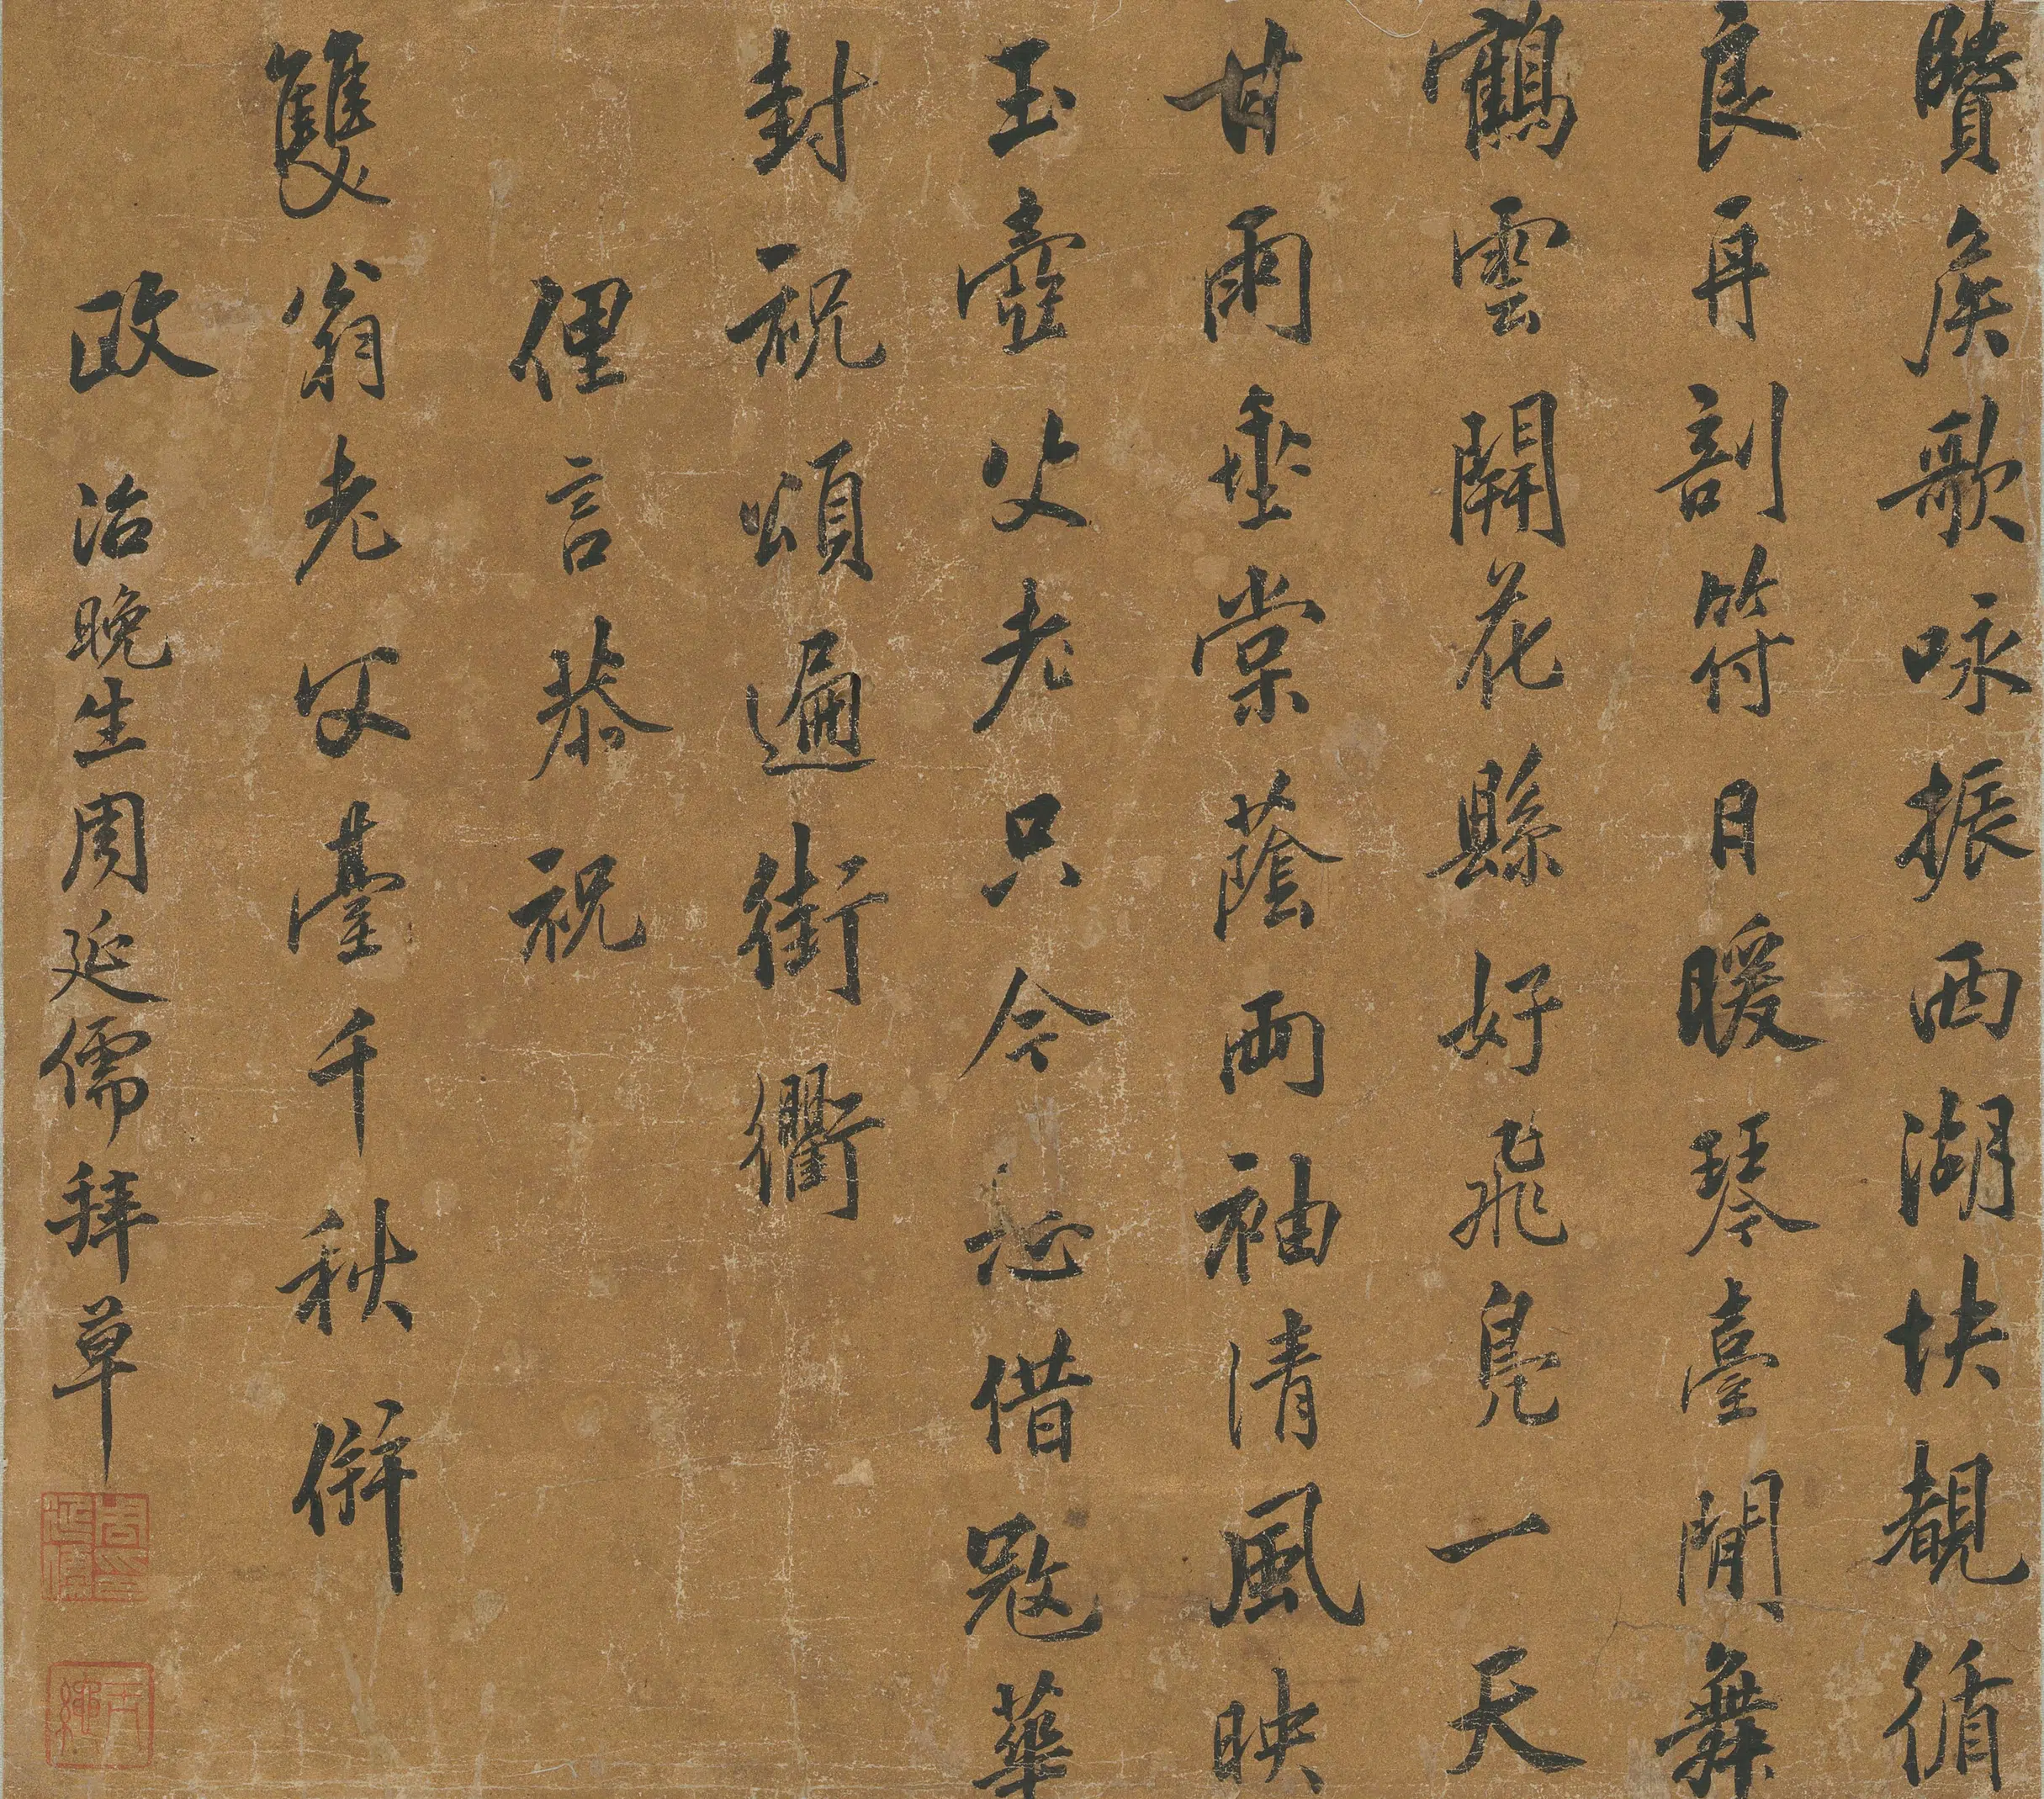 侯歌咏振西湖快覩循
良再剖符日暖琴臺閒舞
鶴雲開花縣好飛鳧一天
甘雨垂棠蔭兩袖清風映
玉壺父老只今必借寇華
封祝頌遍街衢
俚言恭祝
雙翁老父臺千秋併
政 治晚生周延儒拜草
周延儒印
玉繩